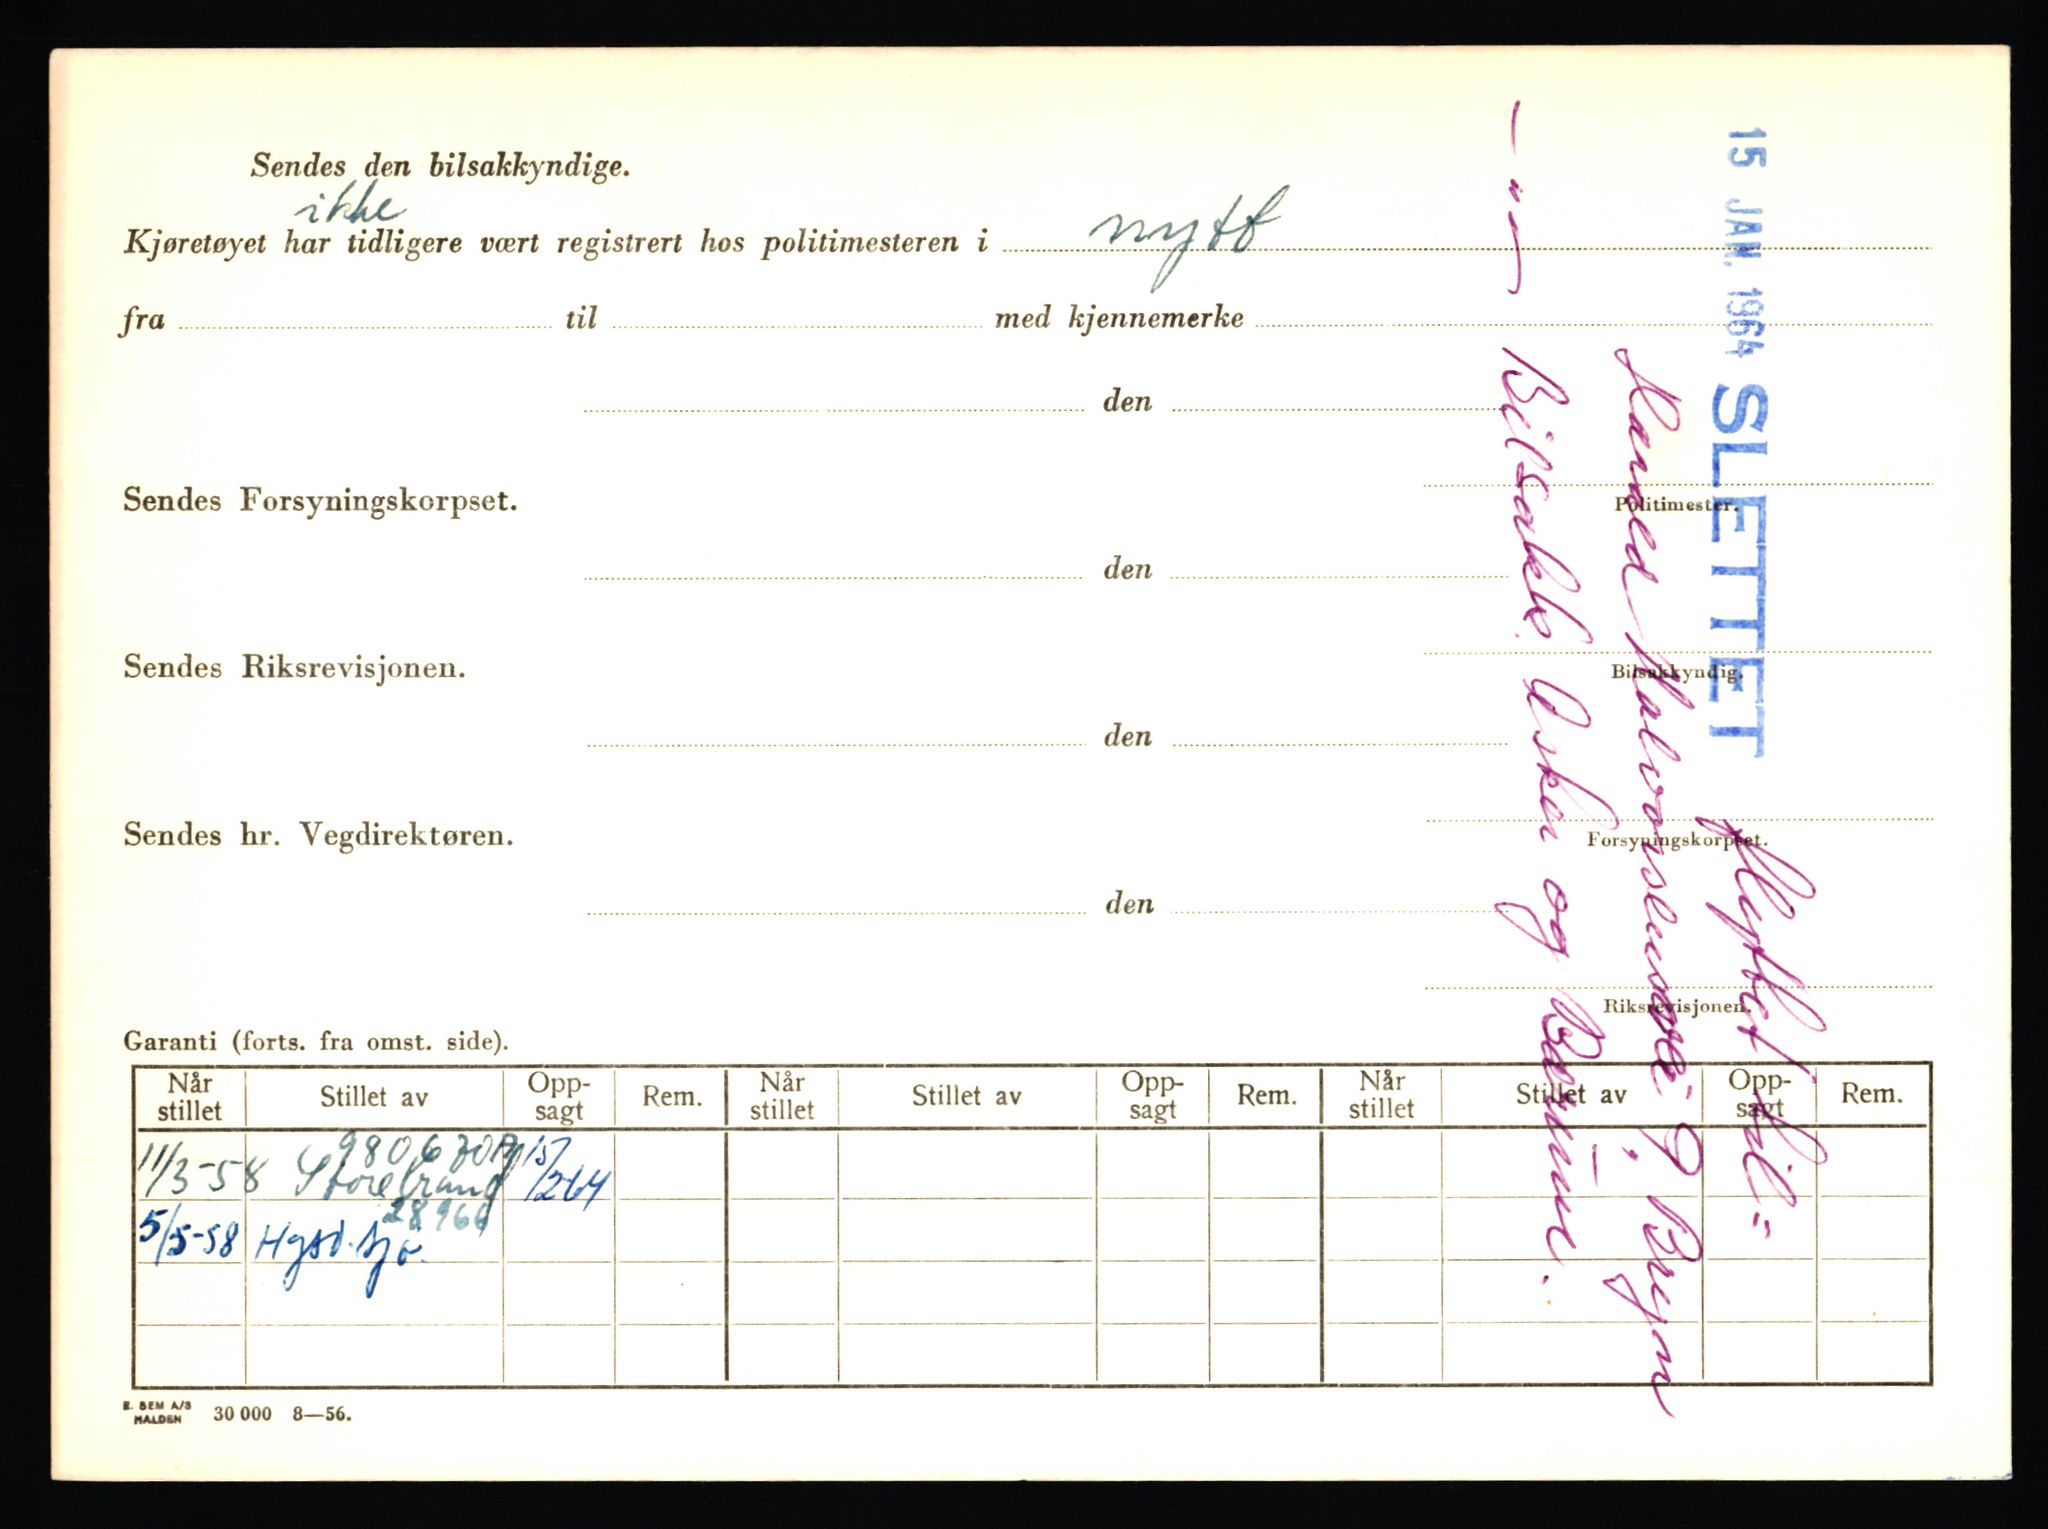 Sendes den bilsakkyndige.
ikke
Kjøretøyet har tidligere vært registrert hos politimesteren i nytt
fra til med kjennemerke
den
Politimester.
Sendes Forsyningskorpset.
den
Bilsakkyndig.
Sendes Riksrevisjonen.
den
Forsyningskorpset.
Sendes hr. Vegdirektøren.
den
Riksrevisjonen.
15 JAN. 1964 SLETTET
Flyttet til:
Halvorsensvei 9, Bryn
Bilsakk. Asker og Bærum.
Garanti (forts. fra omst. side).
Når stillet Stillet av Opp-sagt Rem. Når stillet Stillet av Opp-sagt Rem. Når stillet Stillet av Opp-sagt Rem.
11/3-58 Storebrand 15/264
5/5-58
E. SEM A/S HALDEN 30 000 8—56.